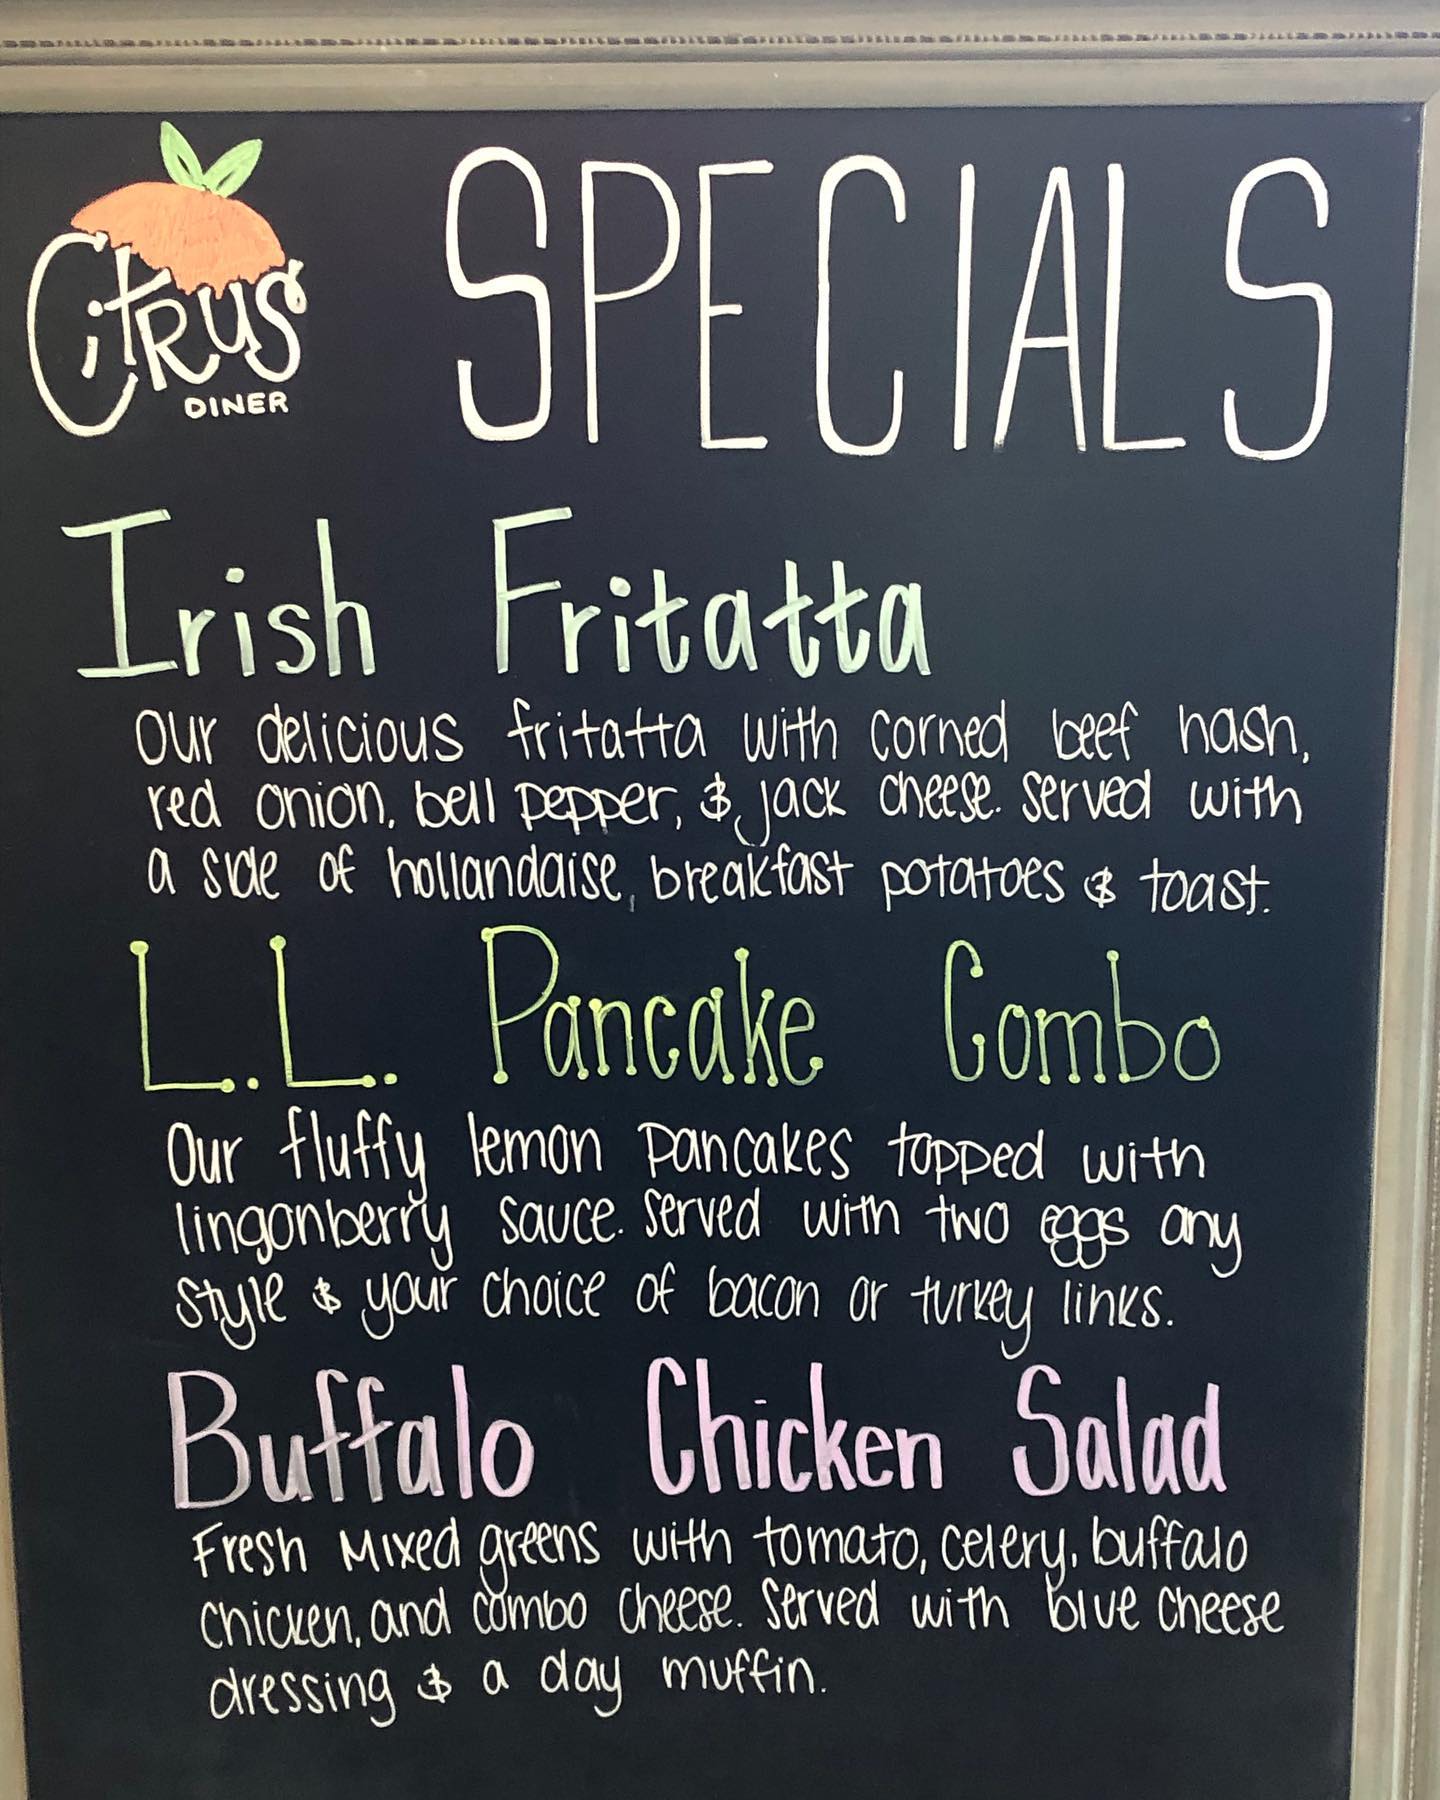 Citrus
DINER
SPECIALS
Irish Fritatta
our delicious fritatta with corned beef hash,
red onion, bell pepper, & jack cheese. served with
a side of hollandaise, breakfast potatoes & toast.
L.L. Pancake Combo
Our fluffy lemon pancakes topped with
lingonberry sauce. served with two eggs any
style & your choice of bacon or turkey links.
Buffalo Chicken Salad
Fresh Mixed greens with tomato, celery, buffalo
chicken, and combo cheese. served with blue cheese
dressing & a day muffin.